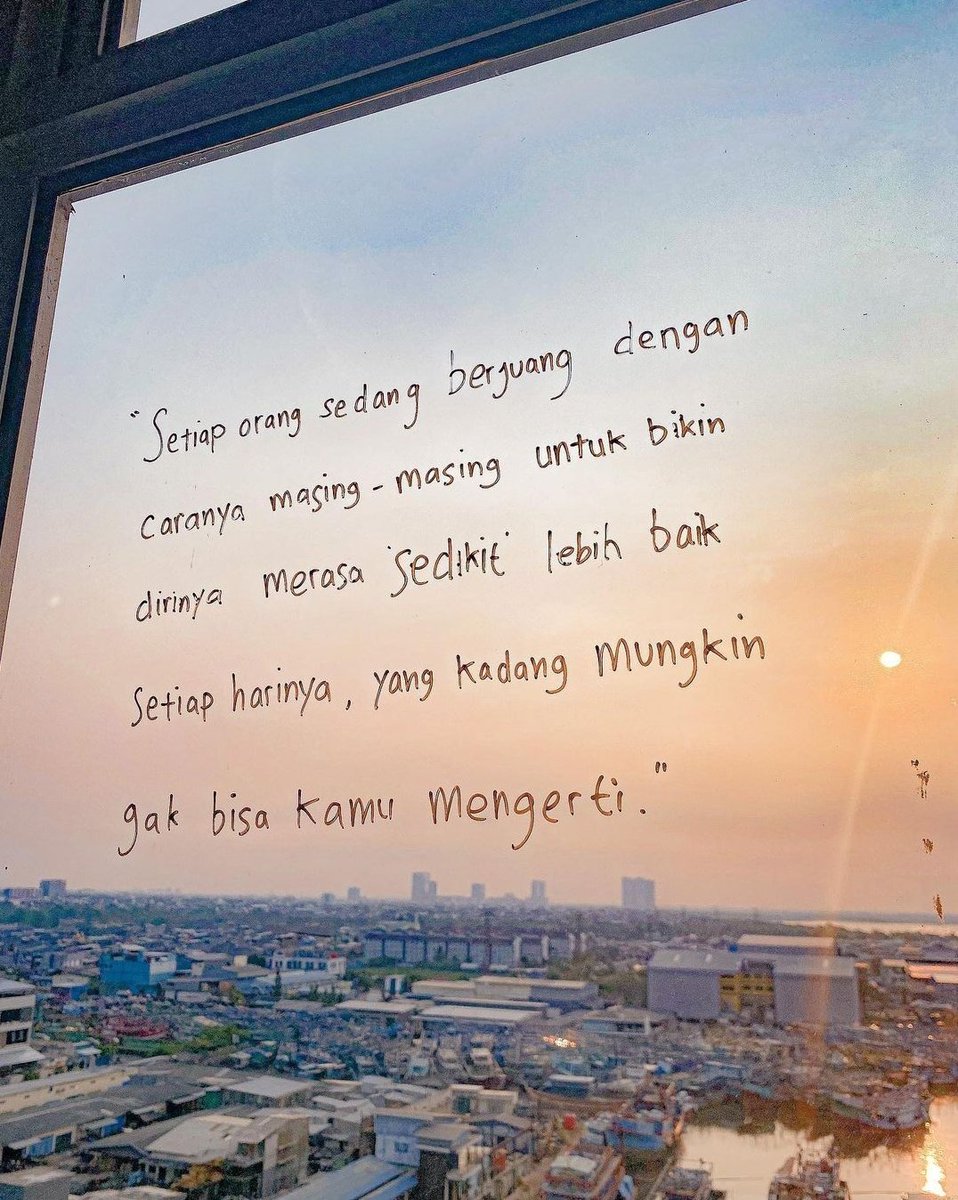 "Setiap orang sedang berjuang dengan
caranya masing-masing untuk bikin
dirinya merasa 'sedikit' lebih baik
setiap harinya, yang kadang mungkin
gak bisa kamu mengerti."